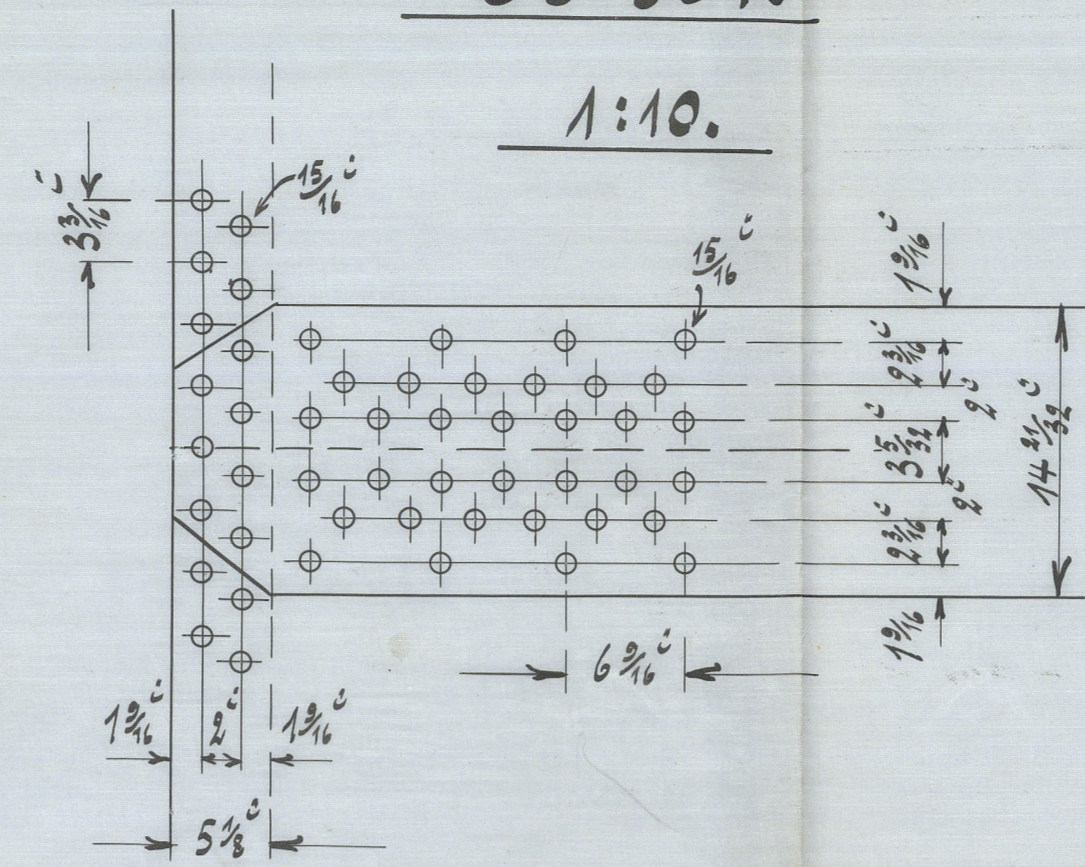 1:10.
3 3/16"
15/16"
15/16"
1 9/16"
2 3/16"
2"
3 5/32"
14 21/32"
2"
2 3/16"
1 9/16
6 9/16"
1 9/16"
2"
1 9/16"
5 1/8"